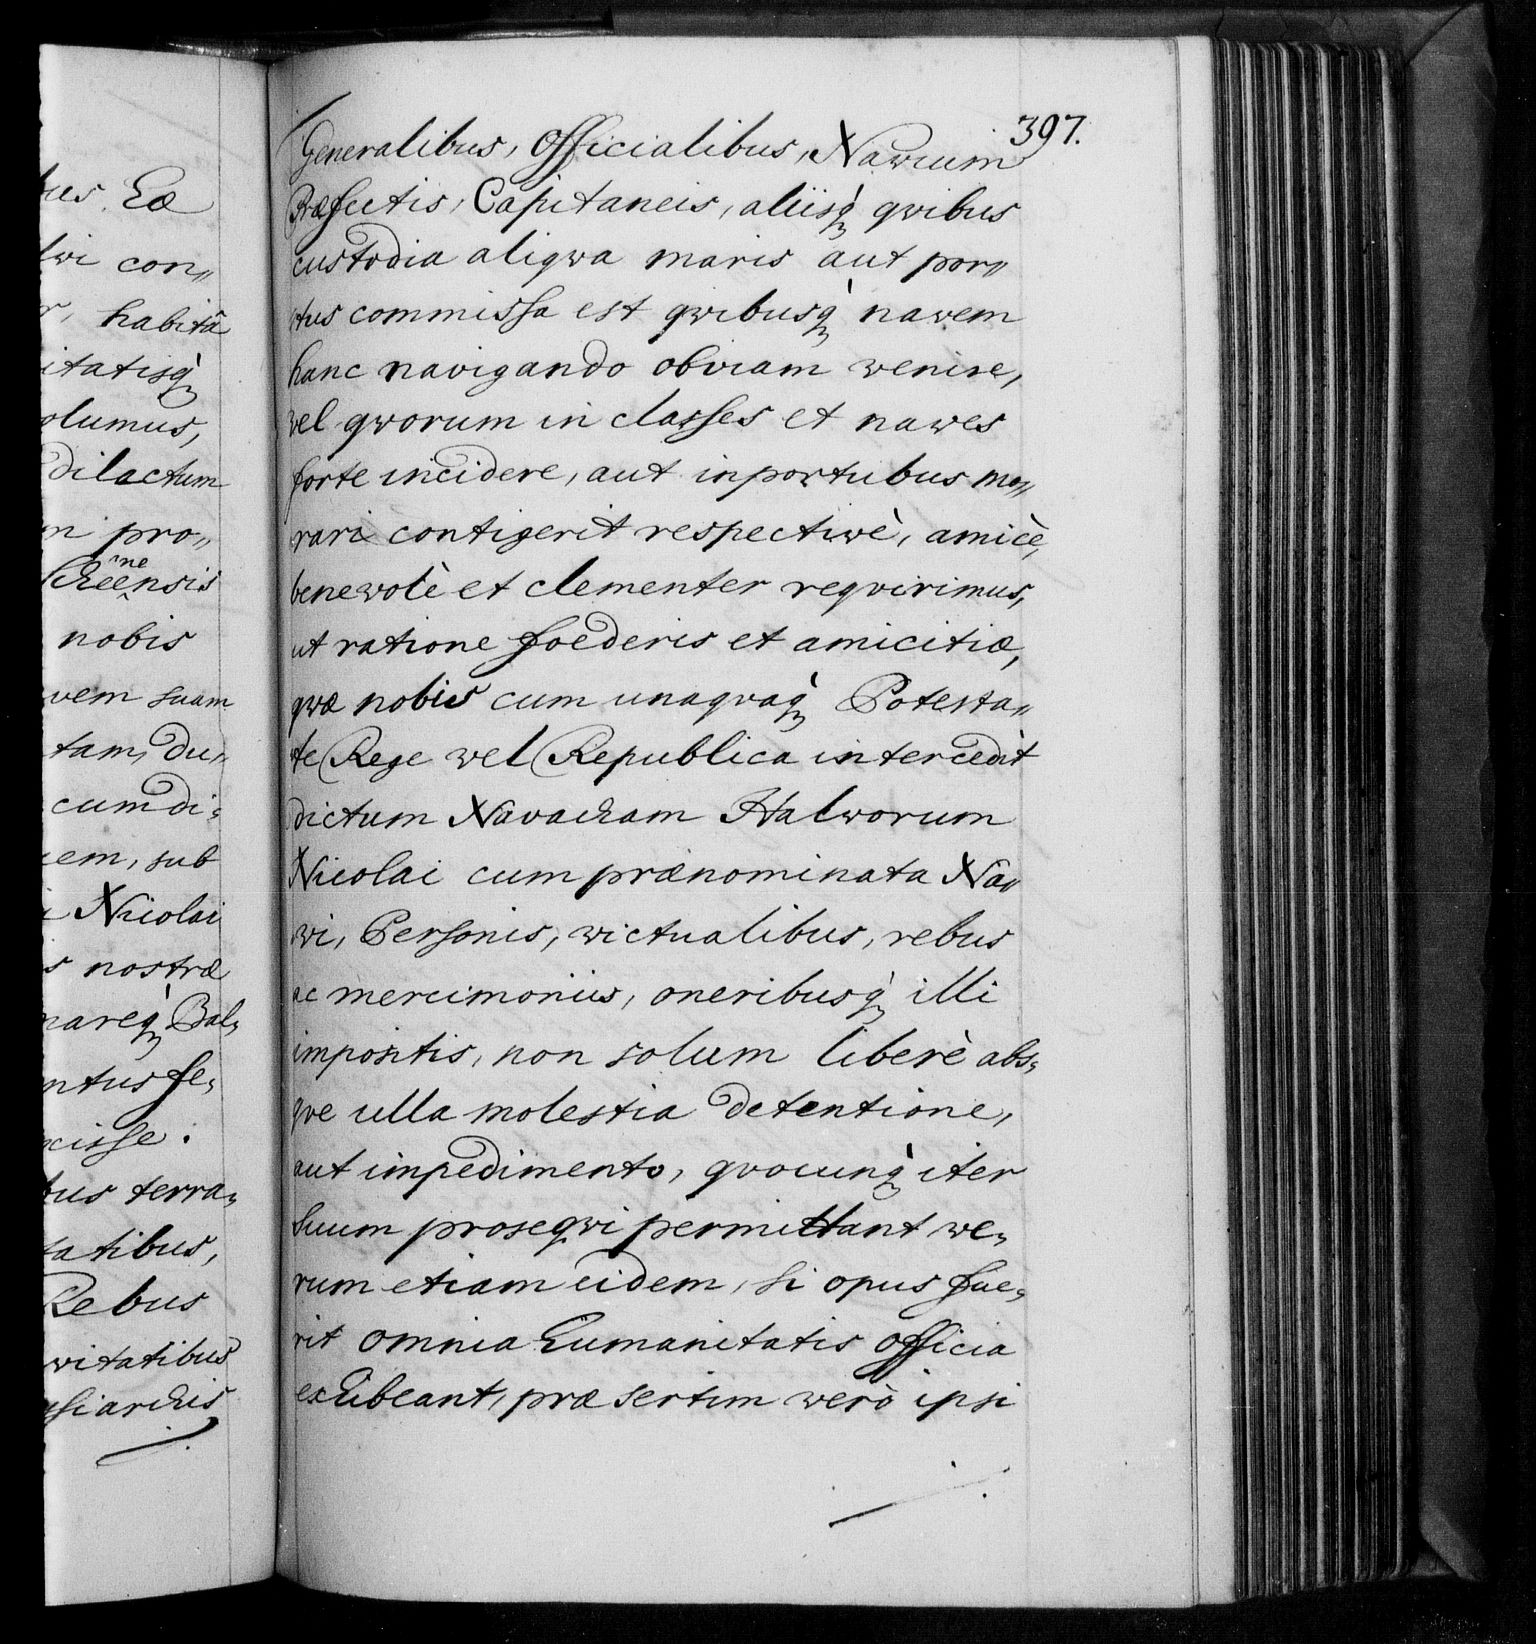 bus. Ea
con„
habitâ
itatisq̀
olumus,
dilectum
pro„
ne
eensis
nobis
vem suam
tam, du„
cum di„
em, sub
Nicolai
s nostræ
mareq̀ Bal„
ntus fe„
cisse.
bus terra„
tatibus,
Rebus
witatibus
siarchis
397.
Generalibus, Officialibus, Nawium
Præfectis, Capitaneis, aliisq̀ qvibus
custodia aliqva maris aut por„
tus commissa est qvibusq̀ nawem
hanc navigando obviam wenire,
vel qvorum in classes et nawes
forte incidere, aut in portubus mo„
rari contigerit respectiwè, amicè,
benewolè et clementer reqvirimus,
ut ratione foederis et amicitiæ,
qvæ nobis cum unaqvaq̀ Potesta„
te Rege wel Republica intercedit
dictum Navarcham Halworum
Nicolai cum prænominata Na„
wi, Personis, wictualibus, rebus
ac mercimoniis, oneribusq̀ illi
impositis, non solum liberè abs„
qve ulla molestia detentione,
aut impedimento, qvocunq̀ iter
suum proseqvi permittant we„
rum etiam eidem, si opus fue„
rit omnia humanitatis officia
exhibeant, præsertim werò ipsi